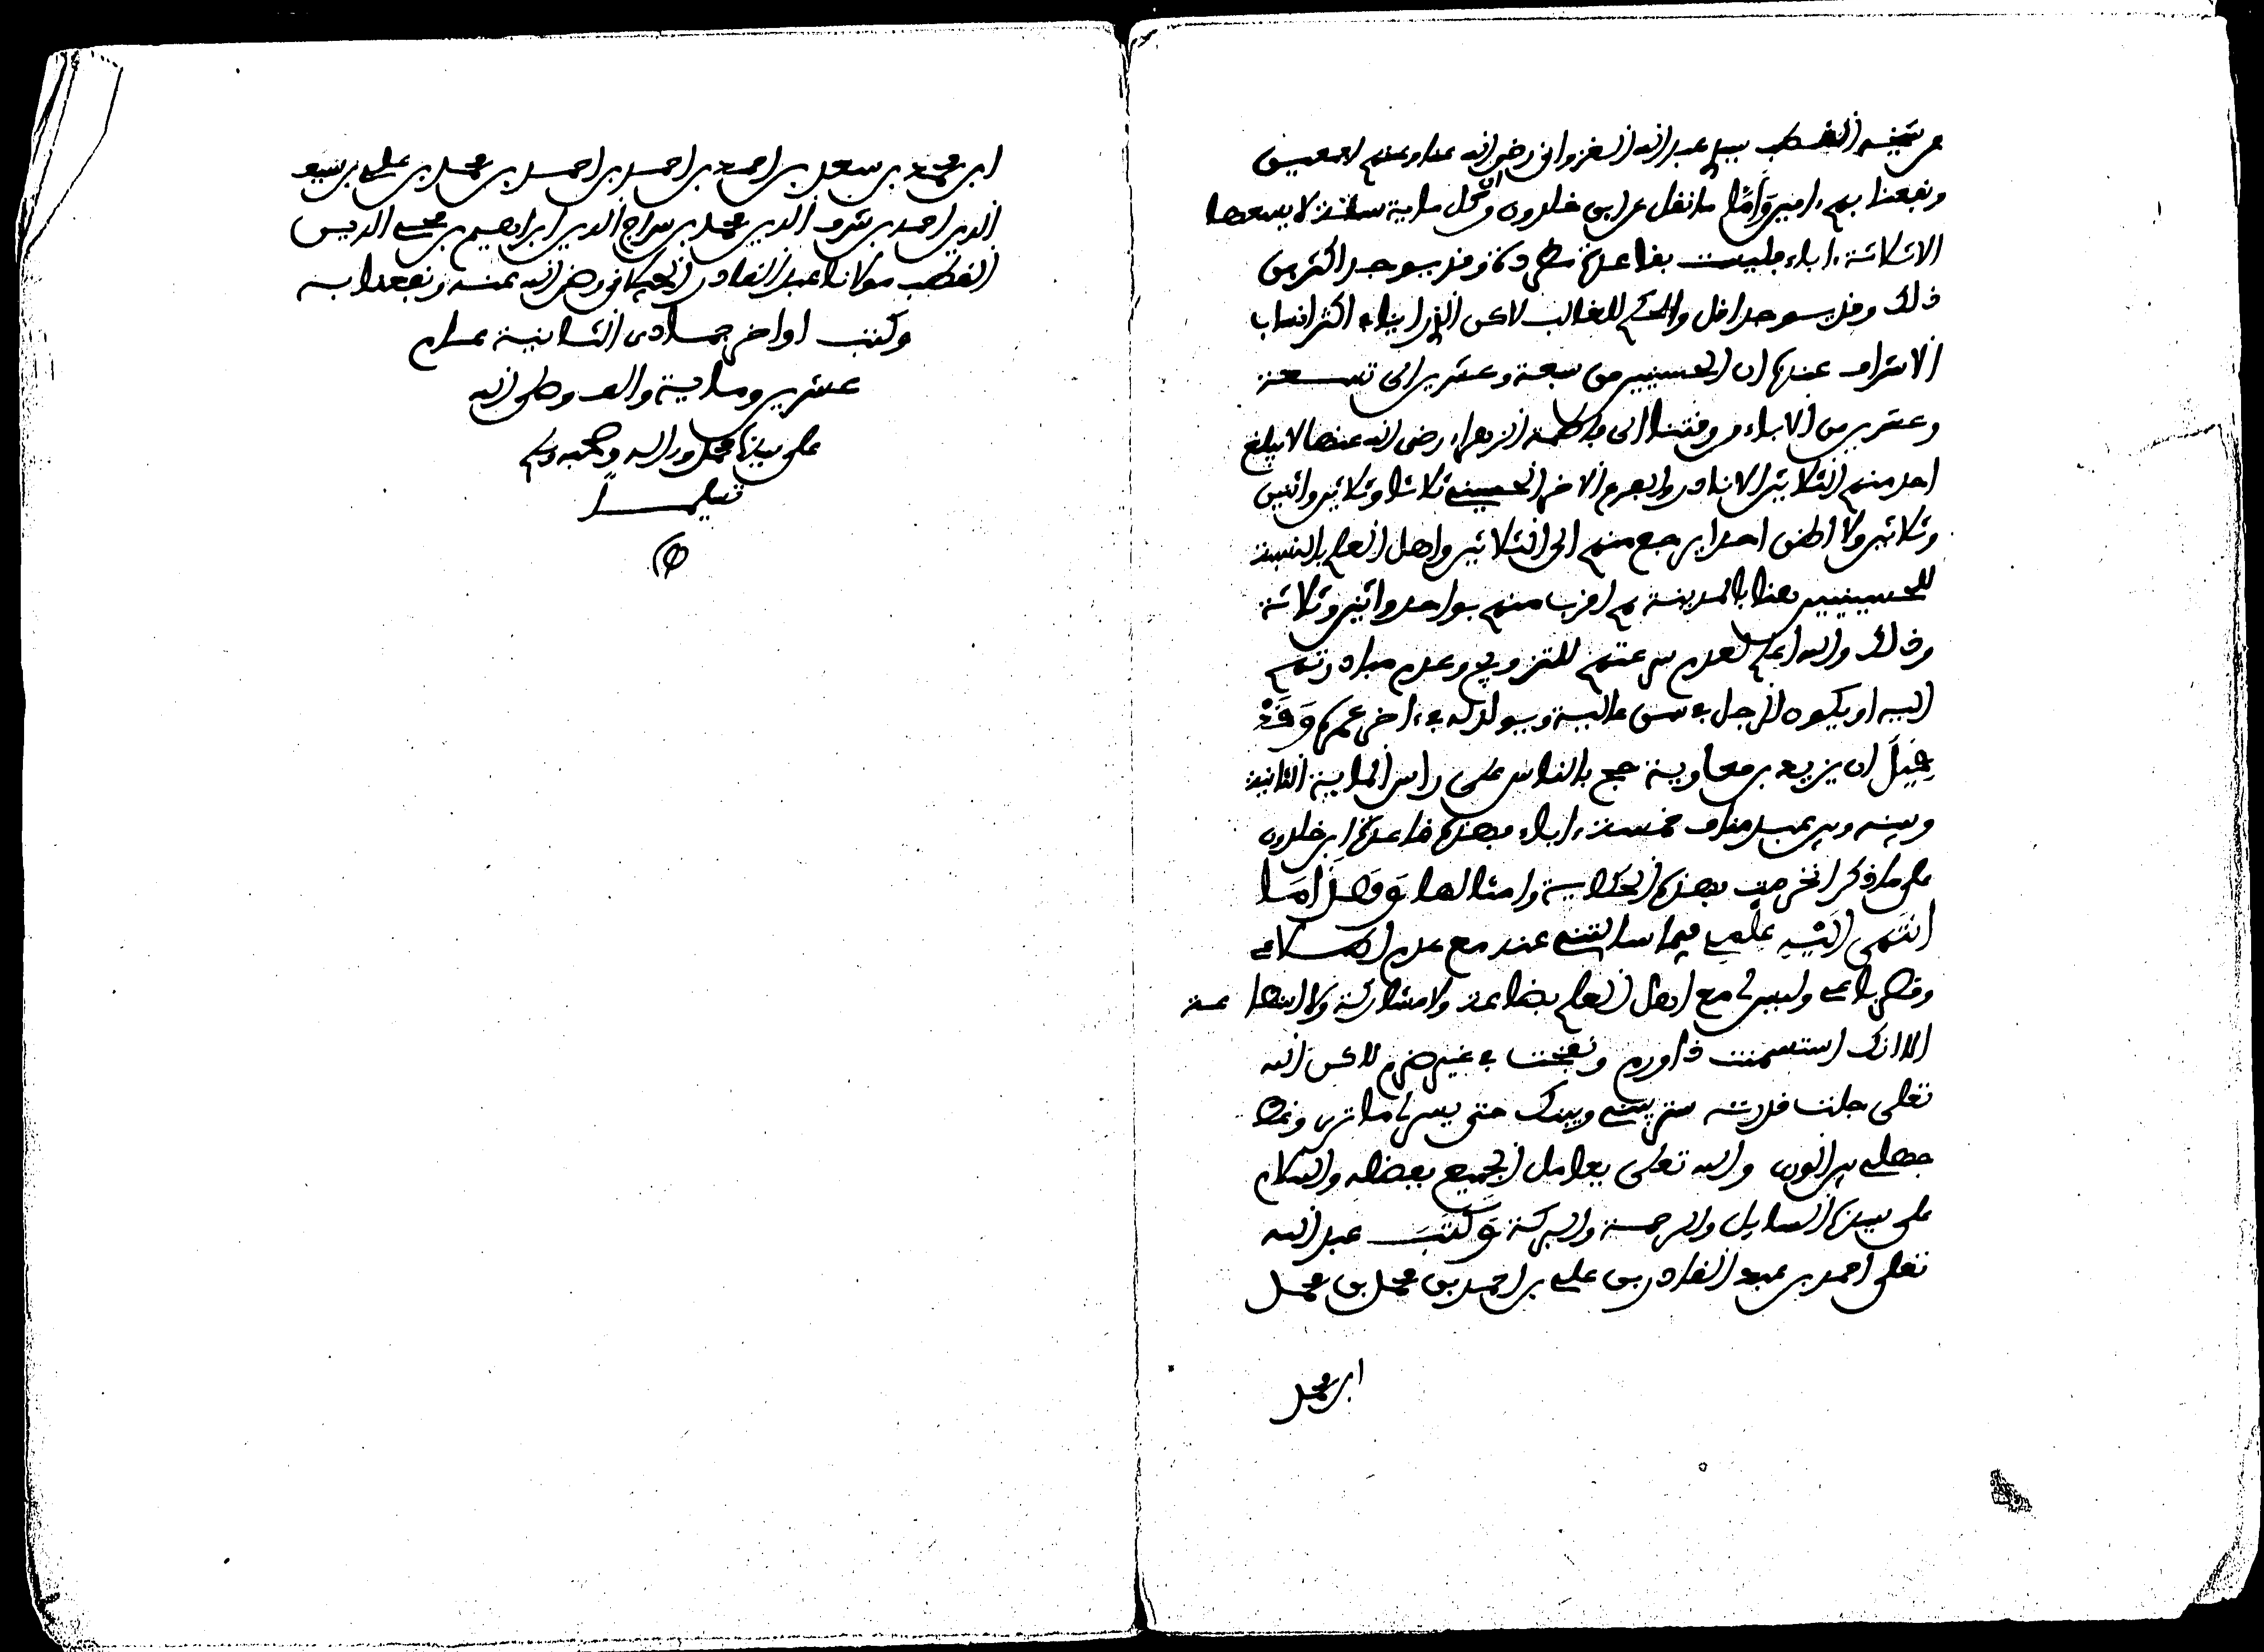 عن شيخه القطب سيدي عبد الله الغزواني رضي الله عنا وعنهم اجمعين
ونفعنا بهم ءامين وأما ما نقل عن ابن خلدون ان كل ماية سنة لا يسعها
الا ثلاثة ءاباء فليست بقاعدة مطردة وقد يوجد اكثر من
ذلك وقد يوجد اقل والحكم للغالب لاكن الذي رايناه اكثر انساب
الاشراف عندنا ان الحسنيين من سبعة وعشرين الى تسعة
وعشرين من الاباء من وقتنا الى فاطمة الزهراء رضي الله عنها لا يبلغ
احد منهم الثلاثين الا نادر والفرع الاخر الحسيني ثلاثا وثلاثين واثنين
وثلاثين ولا اظن احدا يرجع منهم الى الثلاثين واهل العلم بالنسبة
للحسينيين هنا بالمدينة هم اقرب منهم بواحد واثنين وثلاثة
وذلك والله اعلم لعدم سرعتهم للتزويج وعدم مبادرتهم
اليه او يكون الرجل في سن عالية ويولد له في ءاخر عمره وقد
قيل ان يزيد بن معاوية حج بالناس على راس الماية الثانية
وبينه وبين عبد مناف خمسة ءاباء فهذه قاعدة ابن خلدون
على ما ذكر انخرمت بهذه الحكاية وامثالها وهذا ما
انتهى اليه علمي فيما سالتني عنه مع عدم اطلاعي
وقصر باعي وليس لي مع اهل العلم بضاعة ولا مشاركة ولا انتها عنه
الا انك استسمنت ذا ورم ونفخت في غير ضرم لاكن الله
تعلى جلت قدرته ستر بيني وبينك حتى يسر لي ما ترى وغطا
جهلي بين الورى والله تعلى يعامل الجميع بفضله والسلام
على سيدنا السايل والرحمة والبركة وكتب عبد الله
تعلى احمد بن عبد القادر بن علي بن احمد بن محمد بن محمد
ابن محمد
ابن محمد بن سعد بن احمد بن احمد بن احمد بن محمد بن علي بن سيف
الدين احمد بن شرف الدين محمد بن سراج الدين ابراهيم بن محيي الدين
القطب مولانا عبد القادر الجيلاني رضي الله عنه ونفعنا به
وكتب اواخر جمادى الثانية عام
عشرين وماية والف وصلى الله
على سيدنا محمد وءاله وصحبه وسلم
تسليما